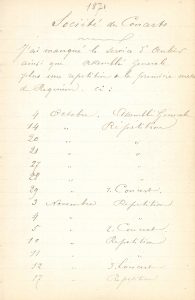 1871
Société des Concerts
J'ai manqué le service d'
ainsi que Assemblé Generale
plus une repetition à la première messe
de Requiem. ci:
4 Octobre. Assemblé Generale
14 " Répétition
20 " "
21 " "
27 " "
28 " "
29 " 1. Concert.
3 Novembre Repetition
4 " "
5 " 2. Concert.
10 " Repetition
11 " "
12 " 3. Concert
17 " Repetition